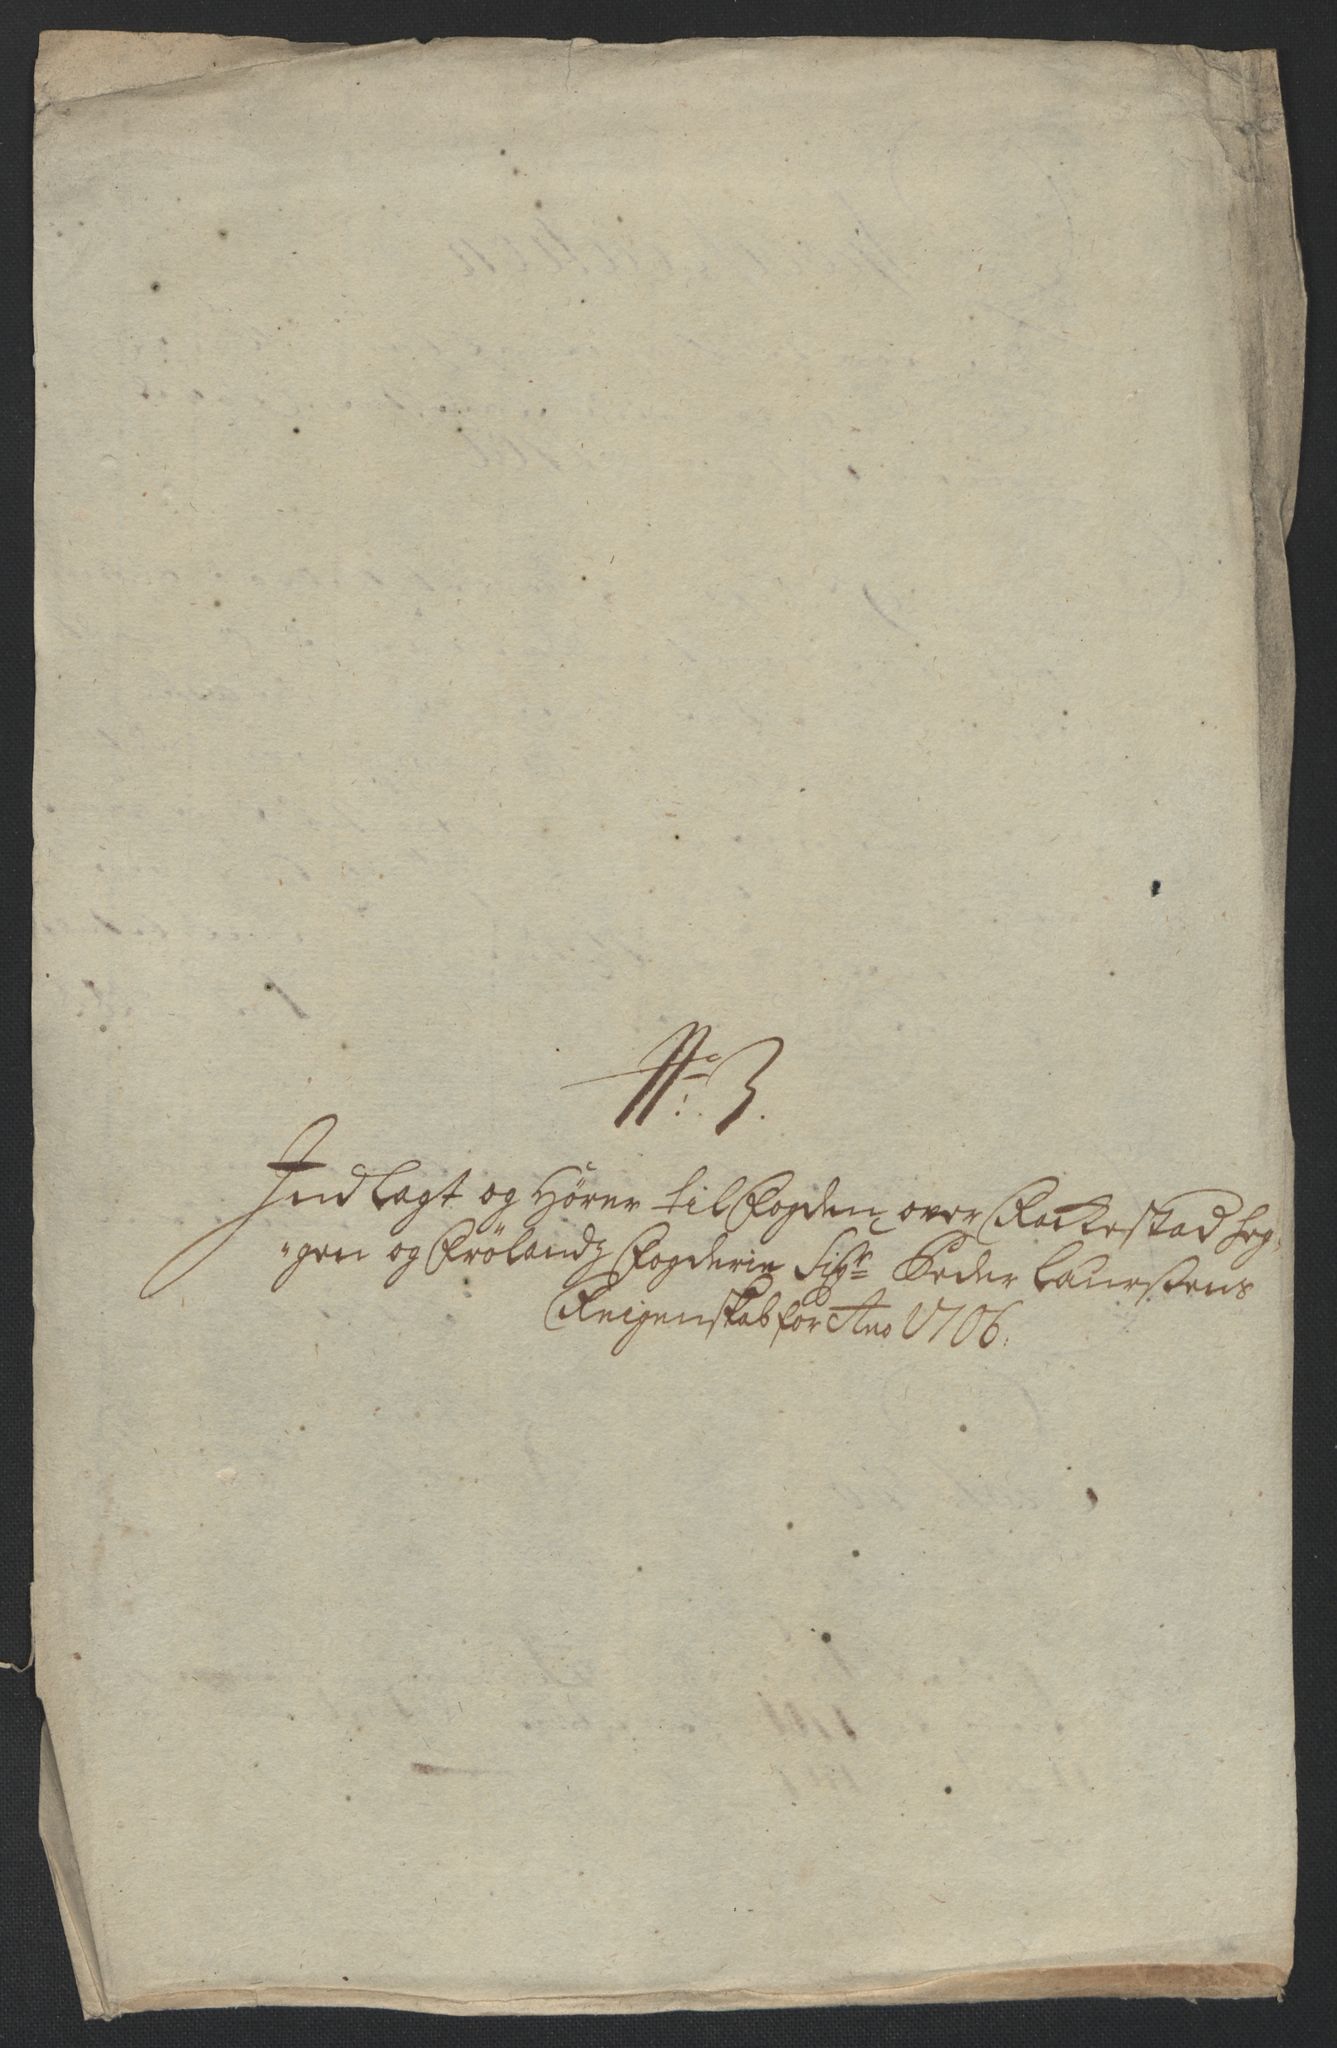 No: 3.
Indlagt og Hører til Fogden over Rackestad, heg¸
"gen og Frölandz Fogderie Sigr Peder Laurssens
Reigenskab for Ano 1706.